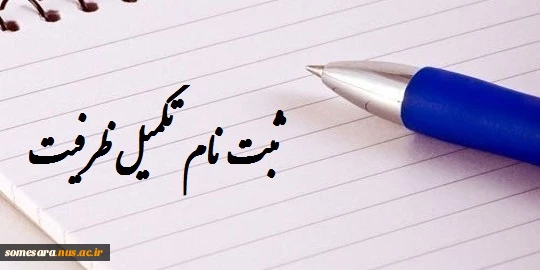 ثبت نام تکمیل ظرفیت
somesara.nus.ac.ir